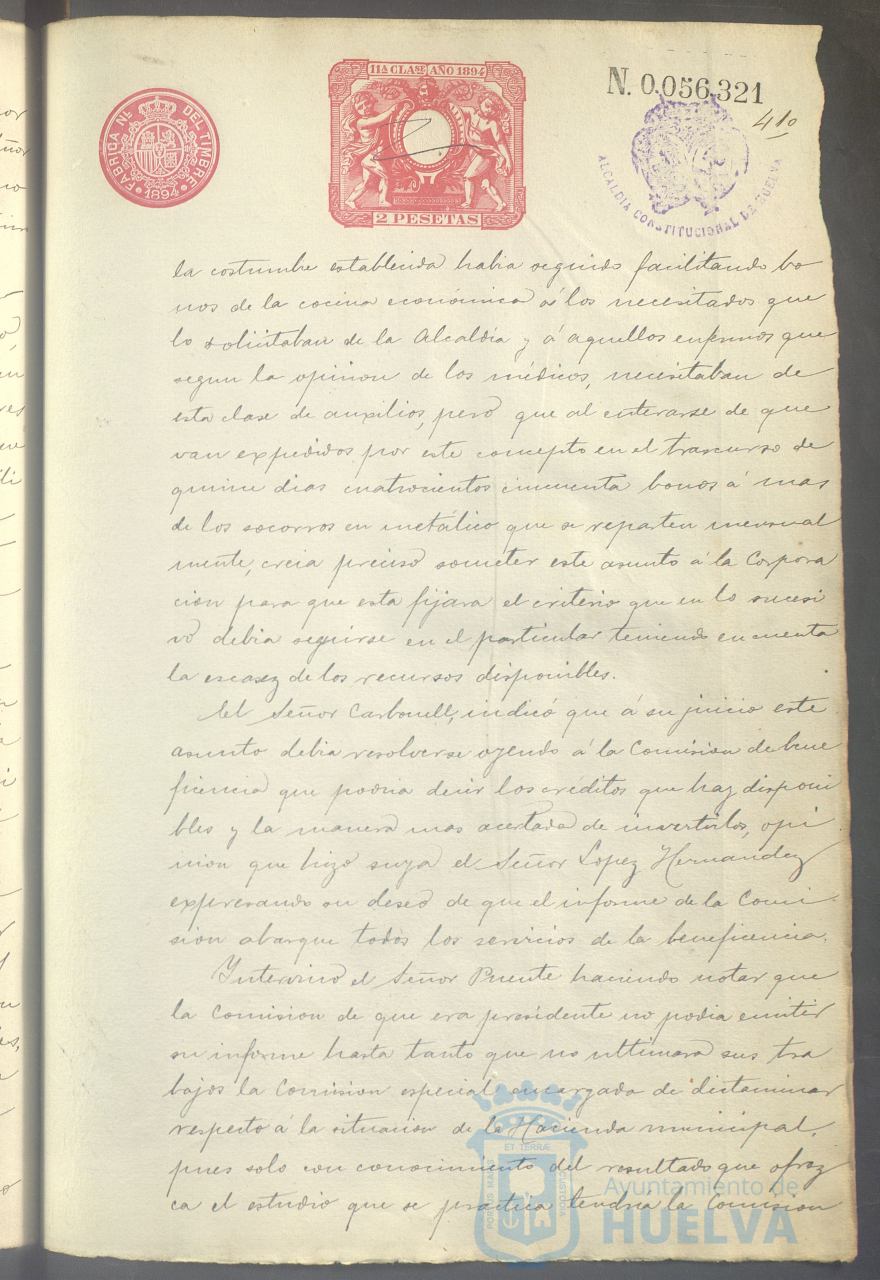 11ª CLASE AÑO 1894
N. 0.056,321
410
FABRICA Nl. DEL TIMBRE
1894
2 PESETAS
ALCALDIA CONSTITUCIONAL DE HUELVA
la costumbre establecida habia seguido facilitando bo
nos de la cocina económica á los necesitados que
lo solicitaban de la Alcaldía y á aquellos enfermos que
segun la opinion de los médicos, necesitaban de
esta clase de auxilios, pero que al enterarse de que
van expedidos por este concepto en el trascurso de
quince dias cuatrocientos cincuenta bonos á mas
de los socorros en metálico que se reparten mensual
mente, creia preciso someter este asunto á la Corpora
cion para que esta fijara el criterio que en lo sucesi
vo debia seguirse en el particular teniendo en cuenta
la escasez de los recursos disponibles.
El Señor Carbonell, indicó que á su juicio este
asunto debia resolverse oyendo á la Comision de bene
ficencia que podria decir los créditos que hay disponi
bles y la manera mas acertada de invertirlos, opi
nion que hizo suya el Señor Lopez Hernandez
expresando su deseo de que el informe de la Comi
sion abarque todos los servicios de la beneficencia.
Intervino el Señor Puente haciendo notar que
la Comision de que era presidente no podia emitir
su informe hasta tanto que no ultimara sus tra
bajos la Comision especial encargada de dictaminar
respecto á la situacion de la Hacienda municipal,
pues solo con conocimiento del resultado que ofrez
ca el estudio que se practica tendria la Comision
PORTUS MARIS ET TERRAE CUSTODIA
Ayuntamiento de
HUELVA